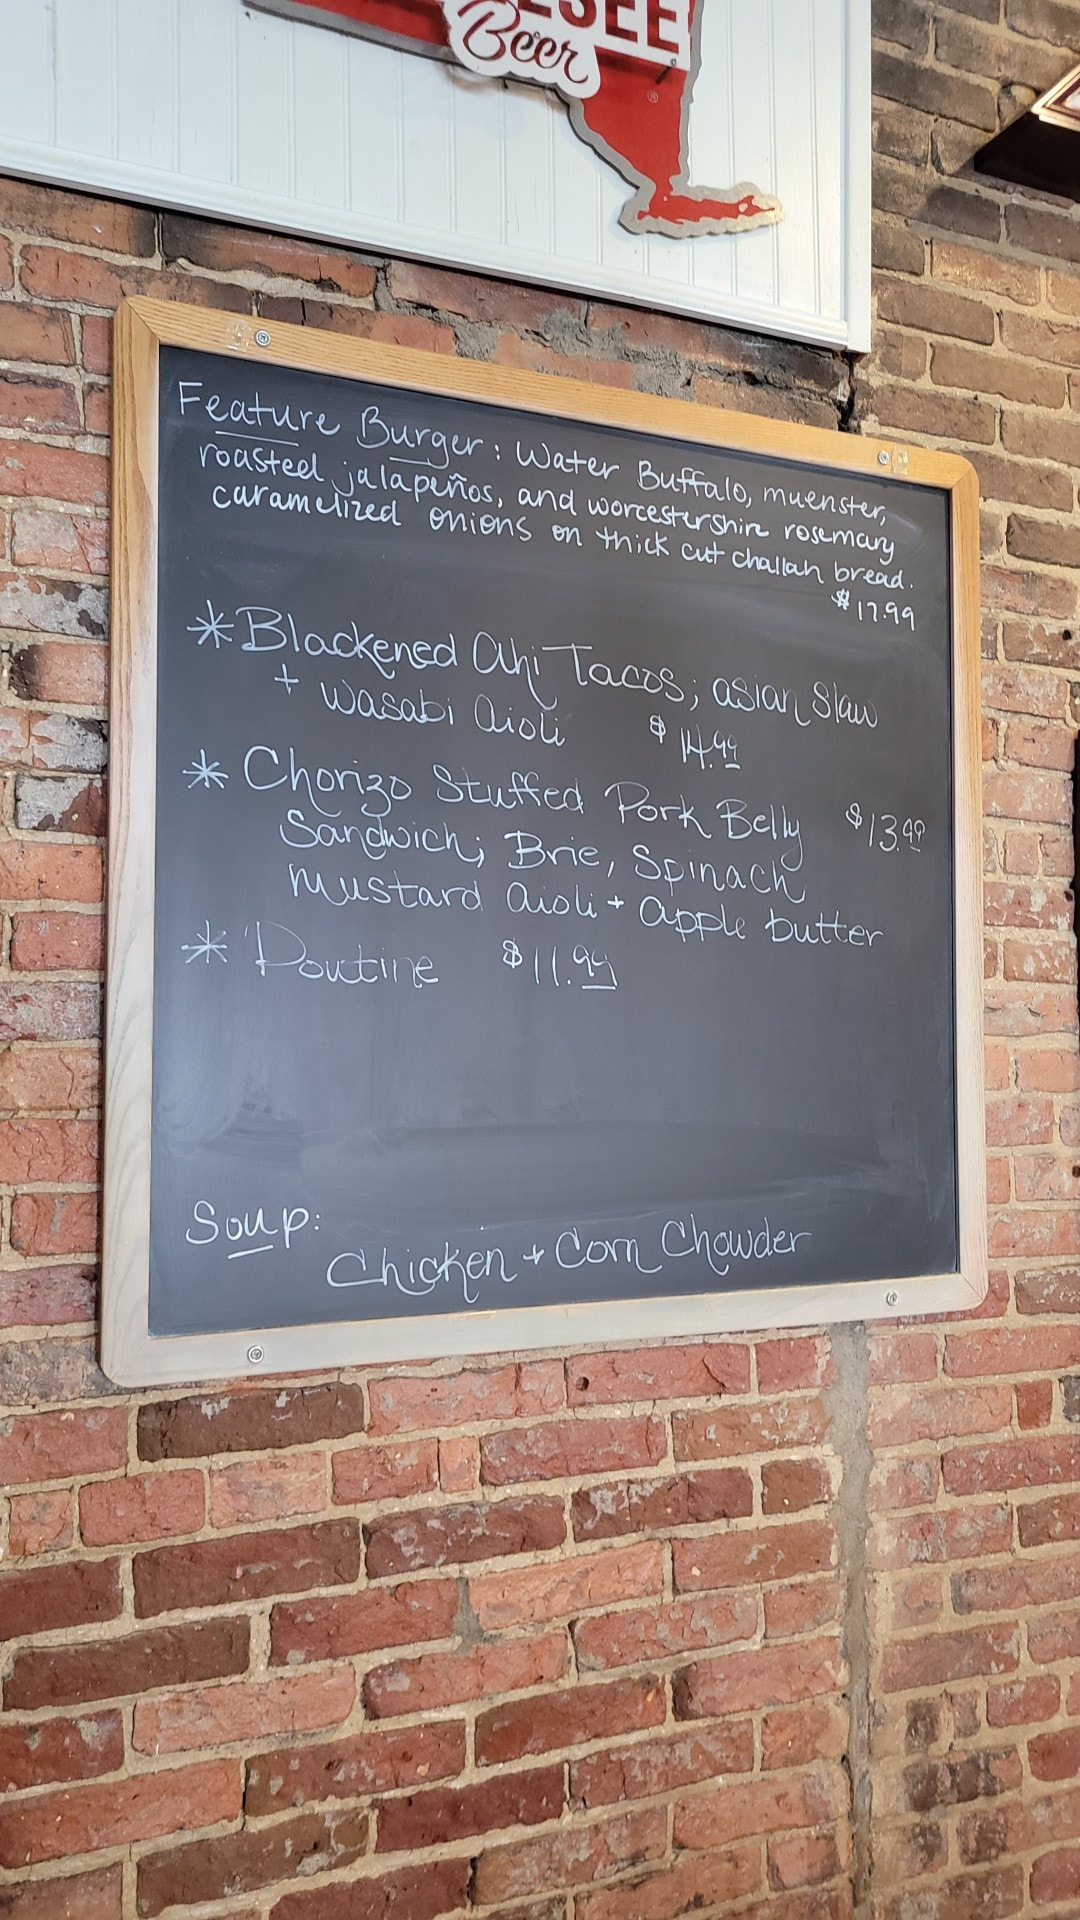 ESEE
Beer
®
Feature Burger: Water Buffalo, muenster,
roasted jalapeños, and worcestershire rosemary
caramelized onions on thick cut challah bread.
$17.99
* Blackened Ahi Tacos; asian slaw
+ wasabi aioli $14.99
* Chorizo Stuffed Pork Belly $13.99
Sandwich; Brie, Spinach
mustard aioli + apple butter
* Poutine $11.99
Soup:
Chicken + Corn Chowder